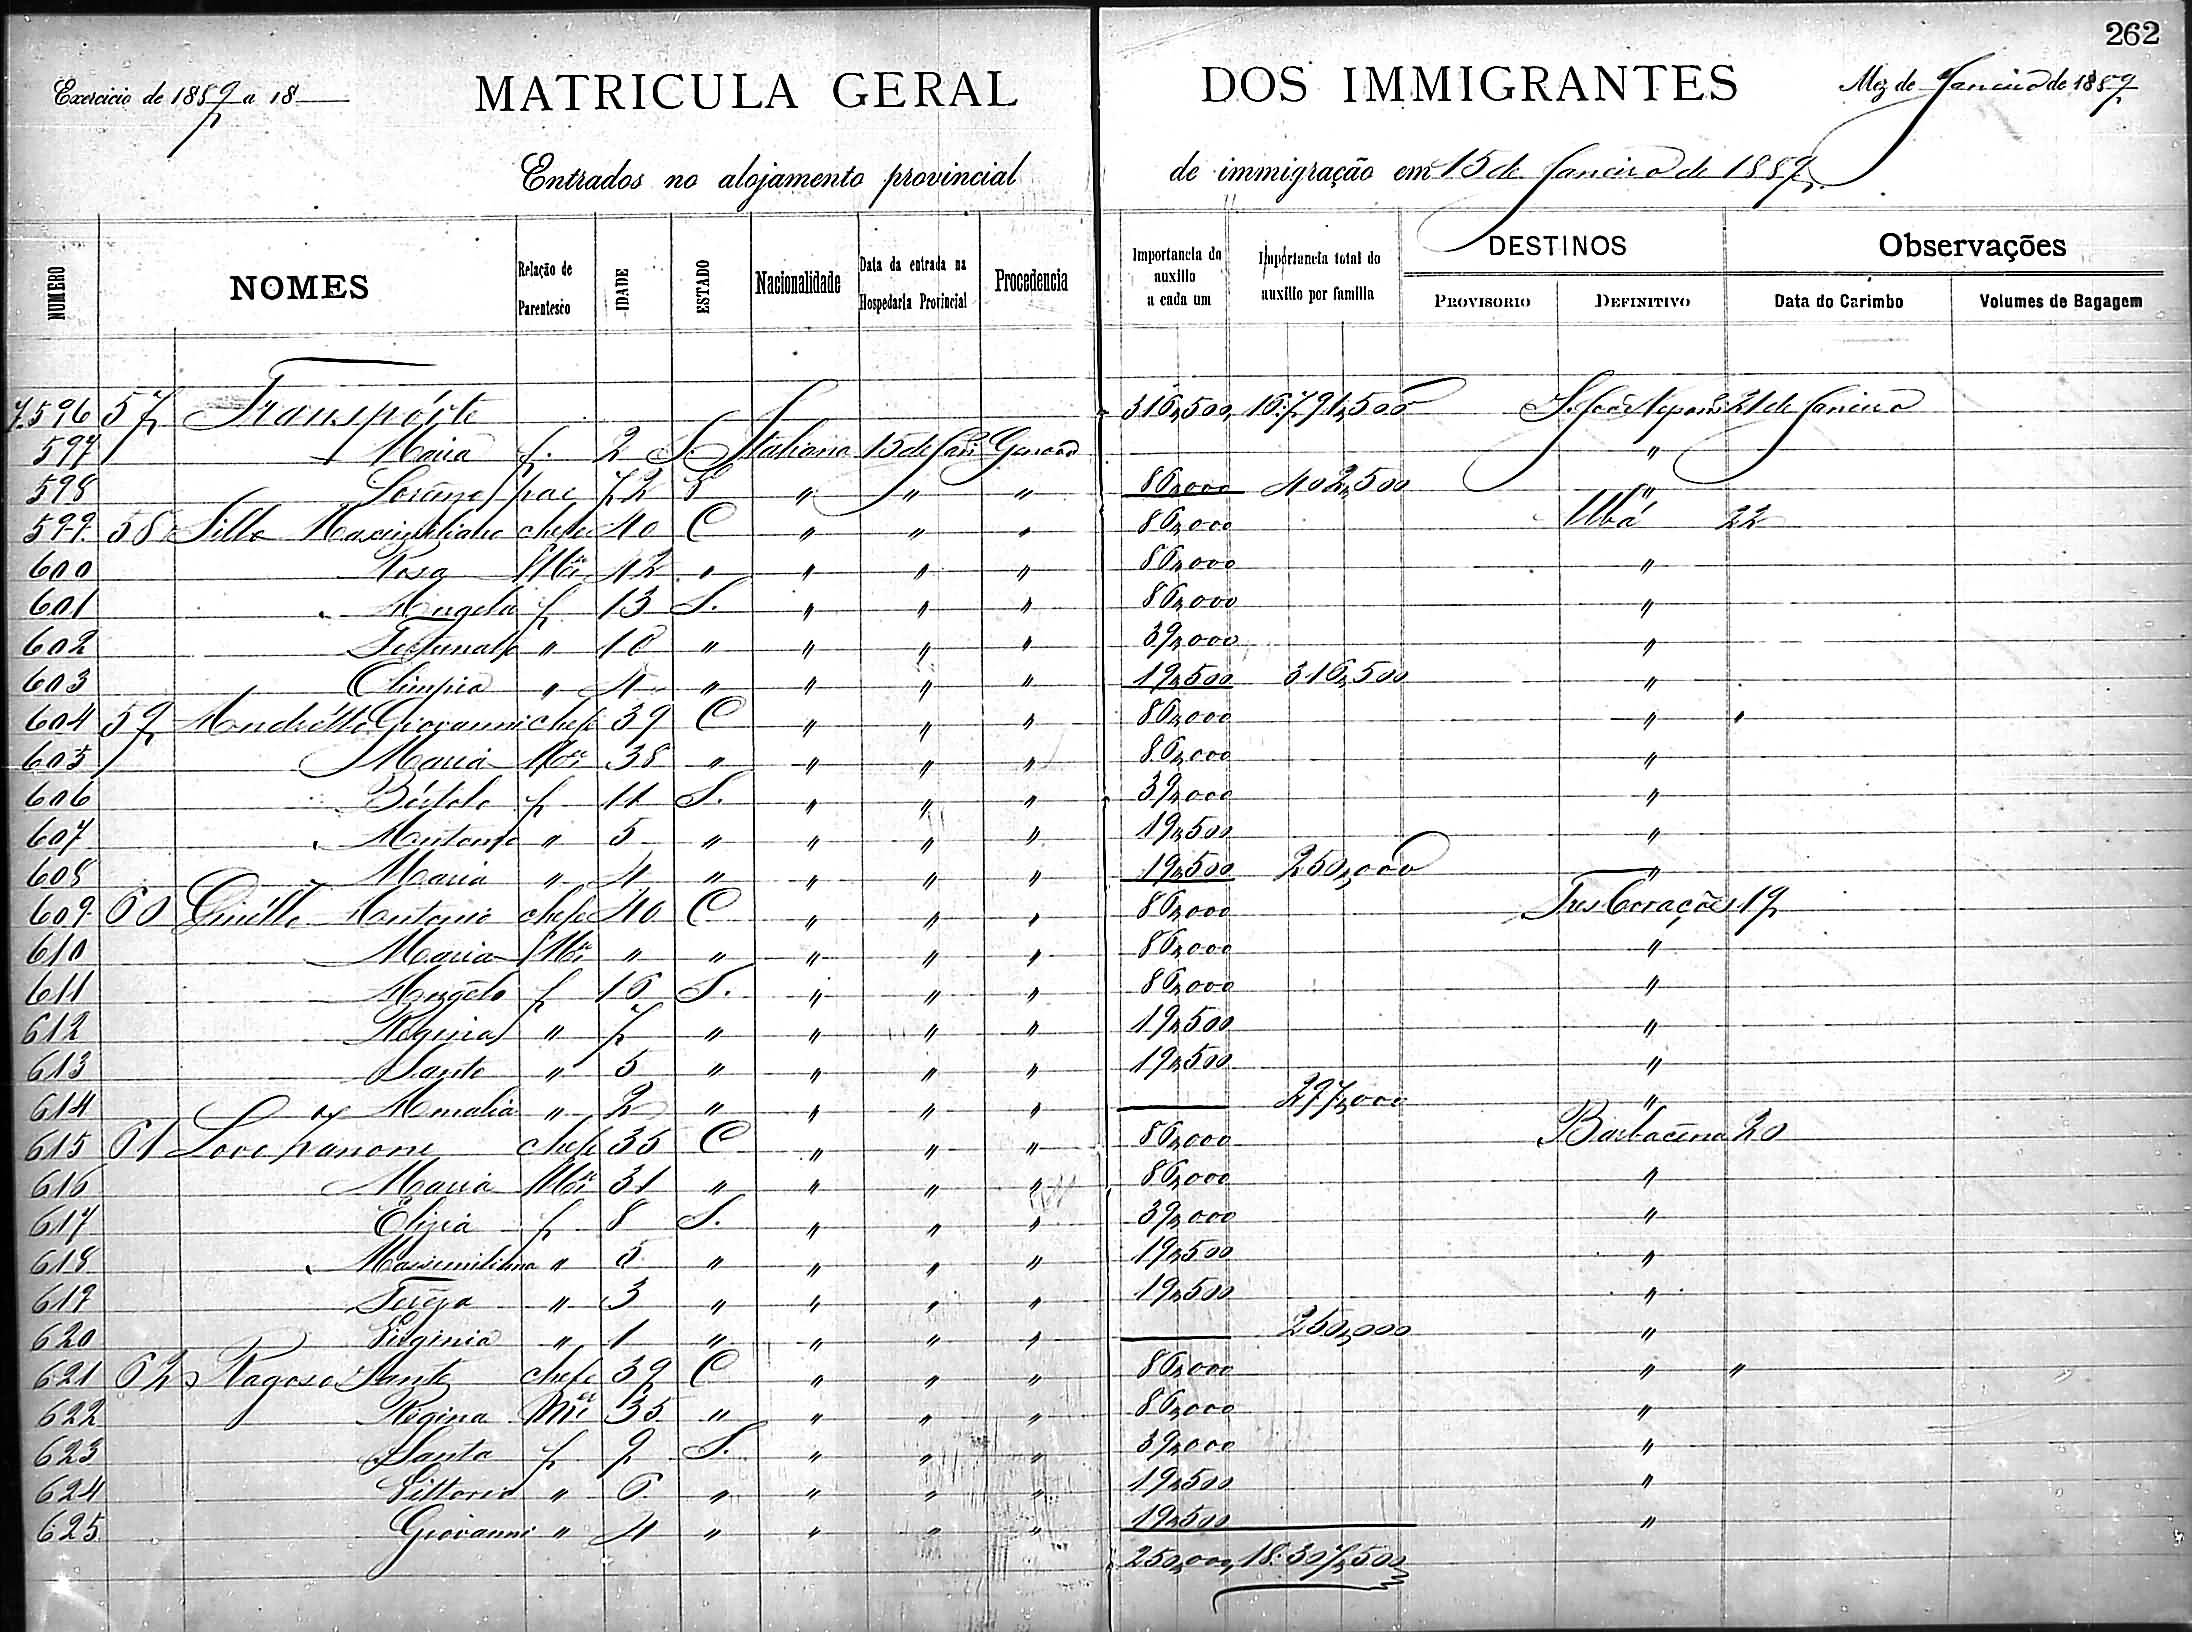 262
Exercicio de 1889 a 18
MATRICULA GERAL DOS IMMIGRANTES
Mez de Janeiro de 1889
Entrados no alojamento provincial de immigração em 15 de Janeiro de 1889
NUMERO NOMES Relação de Parentesco IDADE ESTADO Nacionalidade Data da entrada na Hospedaria Provincial Procedencia Importancia do auxilio a cada um Importancia total do auxilio por familia DESTINOS PROVISORIO DEFINITIVO Observações Data do Carimbo Volumes de Bagagem
7.596 57 Transpórte 316,500 16:791,500 21 de Janeiro
597 Maria f. 2 S. Italiana 15 de Jan Genova "
598 pai 72 " " " 86,000 402,500 "
599 58 chefe 40 C " " " 86,000 Ubá 22
600 Rosa Mer 42 " " " " 86,000 "
601 Angela f 13 S. " " " 86,000 "
602 " 10 " " " " 39,000 "
603 Olimpia " 4 " " " " 19,500 316,500 "
604 59 Giovanni chefe 39 C " " " 86,000 " "
605 Maria Mer 38 " " " " 86,000 "
606 Bórtolo f 11 S. " " " 39,000 "
607 " 5 " " " " 19,500 "
608 Maria " 4 " " " " 19,500 250,000 "
609 60 Antonio chefe 40 C " " " 86,000 Tres Corações 19
610 Maria Mer " " " " " 86,000 "
611 Angelo f 16 S. " " " 86,000 "
612 Regina " 7 " " " " 19,500 "
613 Santo " 5 " " " " 19,500 "
614 Amalia " 2 " " " " 297,000 "
615 61 chefe 35 C " " " 86,000 Barbacena 20
616 Maria Mer 31 " " " " 86,000 "
617 f 8 S. " " " 39,000 "
618 " 5 " " " " 19,500 "
619 Tereza " 3 " " " " 19,500 "
620 Virginia " 1 " " " " 250,000 "
621 62 chefe 39 C " " " 86,000 " "
622 Regina Mer 35 " " " " 86,000 "
623 Santa f 9 S. " " " 39,000 "
624 Vittorio " 6 " " " " 19,500 "
625 Giovanni " 4 " " " " 19,500 "
250,000 18:307,500